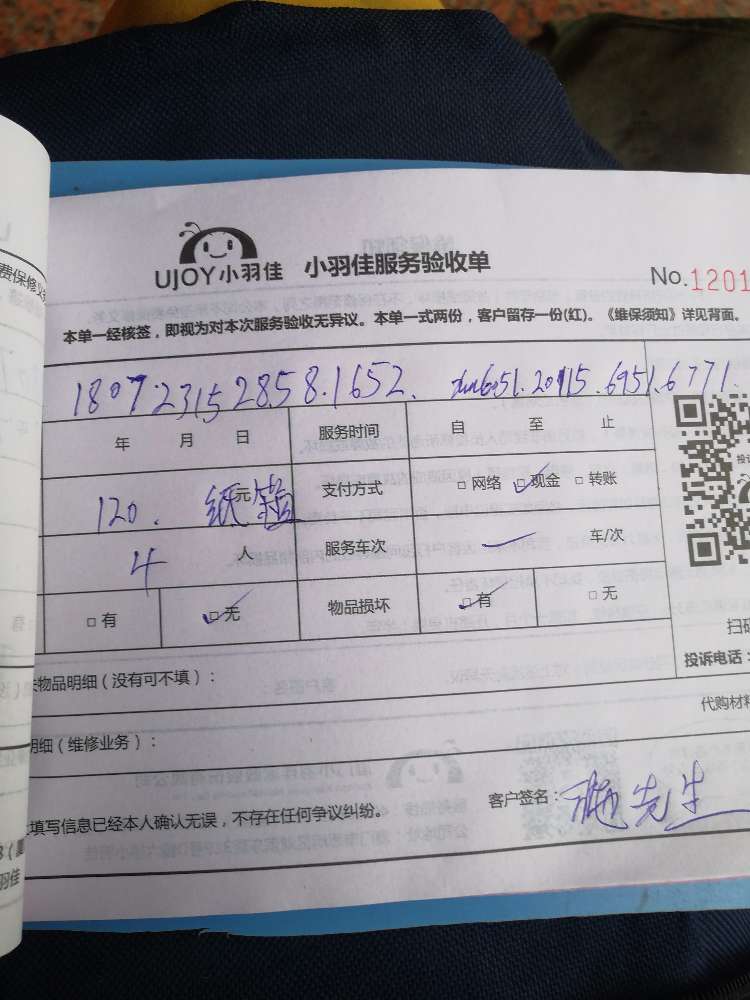 费保修义
UJOY小羽佳 小羽佳服务验收单
No.1201
本单一经核签，即视为对本次服务验收无异议。本单一式两份，客户留存一份(红)。《维保须知》详见背面。
1807.2315 2858.1652. 6051.2015.6951.6771.
年 月 日 服务时间 自 至 止
120. 纸箱 元 支付方式 □ 网络 ☑ 现金 □ 转账
4 人 服务车次 车/次
□ 有 ☑ 无 物品损坏 ☑ 有 □ 无
扫码
投诉电话：
物品明细（没有可不填）：
代购材料
明细（维修业务）：
填写信息已经本人确认无误，不存在任何争议纠纷。
客户签名： 施先生
羽佳